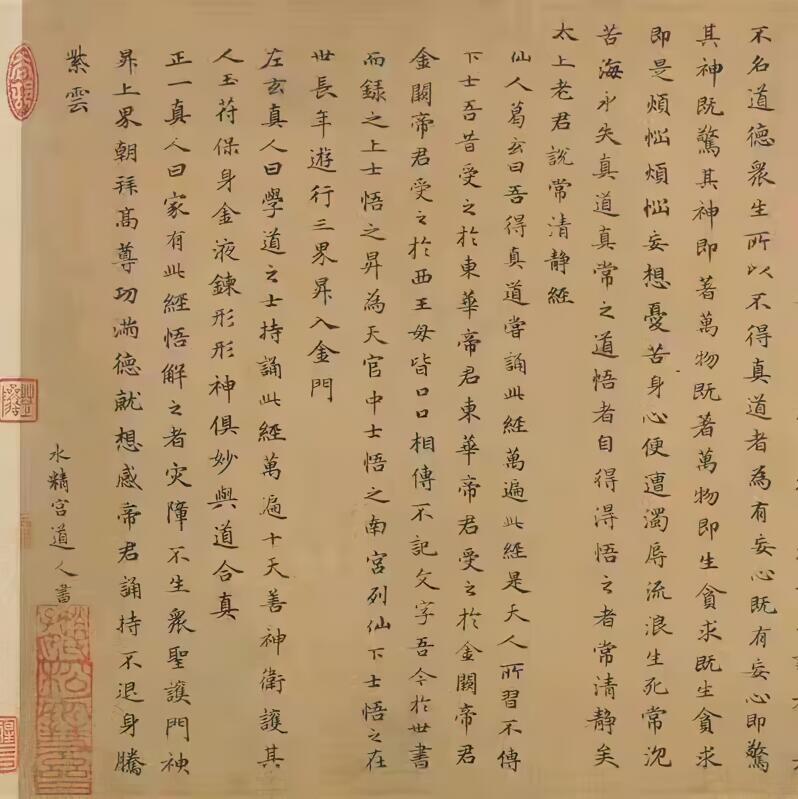 不名道德衆生所以不得真道者為有妄心既有妄心即驚
其神既驚其神即著萬物既著萬物即生貪求既生貪求
即是煩惱煩惱妄想憂苦身心便遭濁辱流浪生死常沉
苦海永失真道真常之道悟者自得得悟之者常清靜矣
太上老君說常清靜經
仙人葛玄曰吾得真道嘗誦此經萬遍此經是天人所習不傳
下士吾昔受之於東華帝君東華帝君受之於金闕帝君
金闕帝君受之於西王母皆口口相傳不記文字吾今於世書
而錄之上士悟之昇為天官中士悟之南宮列仙下士悟之在
世長年遊行三界昇入金門
左玄真人曰學道之士持誦此經萬遍十天善神衛護其
人玉符保身金液鍊形形神俱妙與道合真
正一真人曰家有此經悟解之者灾障不生衆聖護門神
昇上界朝拜髙尊功満德就想感帝君誦持不退身騰
紫雲
水精宮道人書